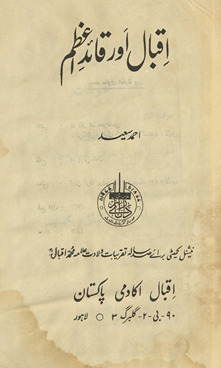 اقبال اور قائد اعظم
احمد سعید
نیشنل کمیٹی برائے صد سالہ تقریبات ولادت علامہ محمد اقبالؒ
اقبال اکادمی پاکستان
۹۰-بی-۲- گلبرگ ۳ ○ لاہور